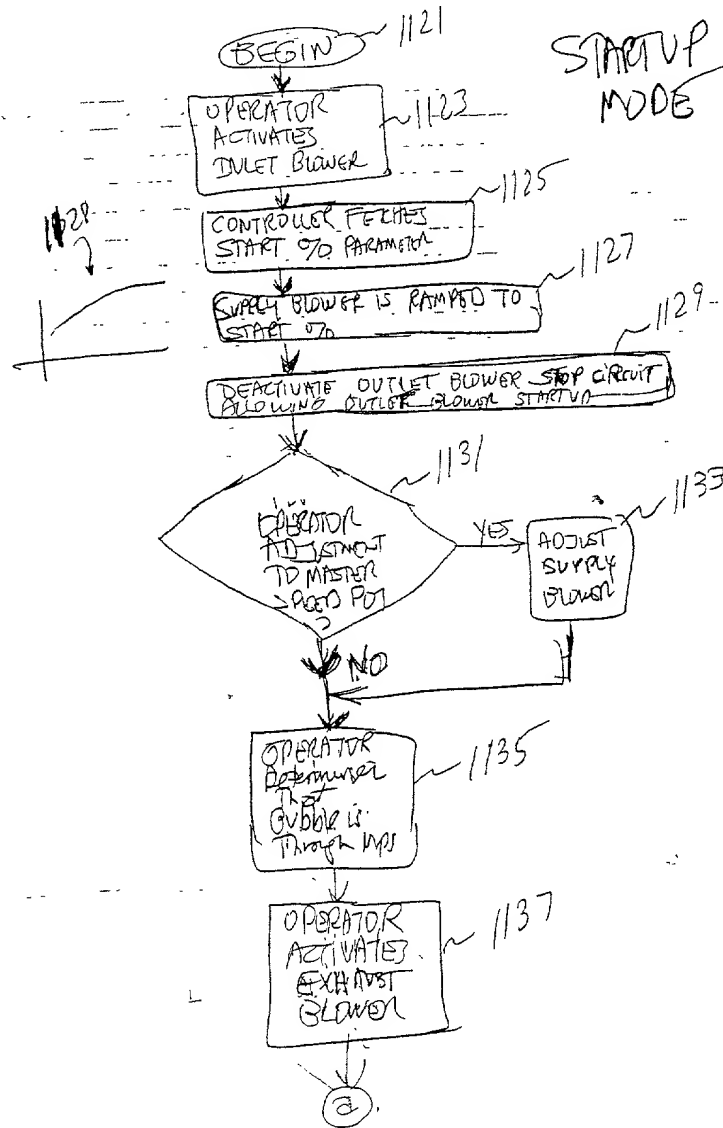 STARTUP
MODE
BEGIN
1121
OPERATOR
ACTIVATES
INLET BLOWER
1123
CONTROLLER FETCHES
START % PARAMETER
1125
SUPPLY BLOWER IS RAMPED TO
START %
1127
1128
DEACTIVATE OUTLET BLOWER STOP CIRCUIT
ALLOWING OUTLET BLOWER STARTUP
1129
OPERATOR
ADJUSTMENT
TO MASTER
SPEED POT
?
1131
YES
ADJUST
SUPPLY
BLOWER
1133
NO
OPERATOR
Determines
That
Bubble is
Through Nips
1135
OPERATOR
ACTIVATES
EXHAUST
BLOWER
1137
a